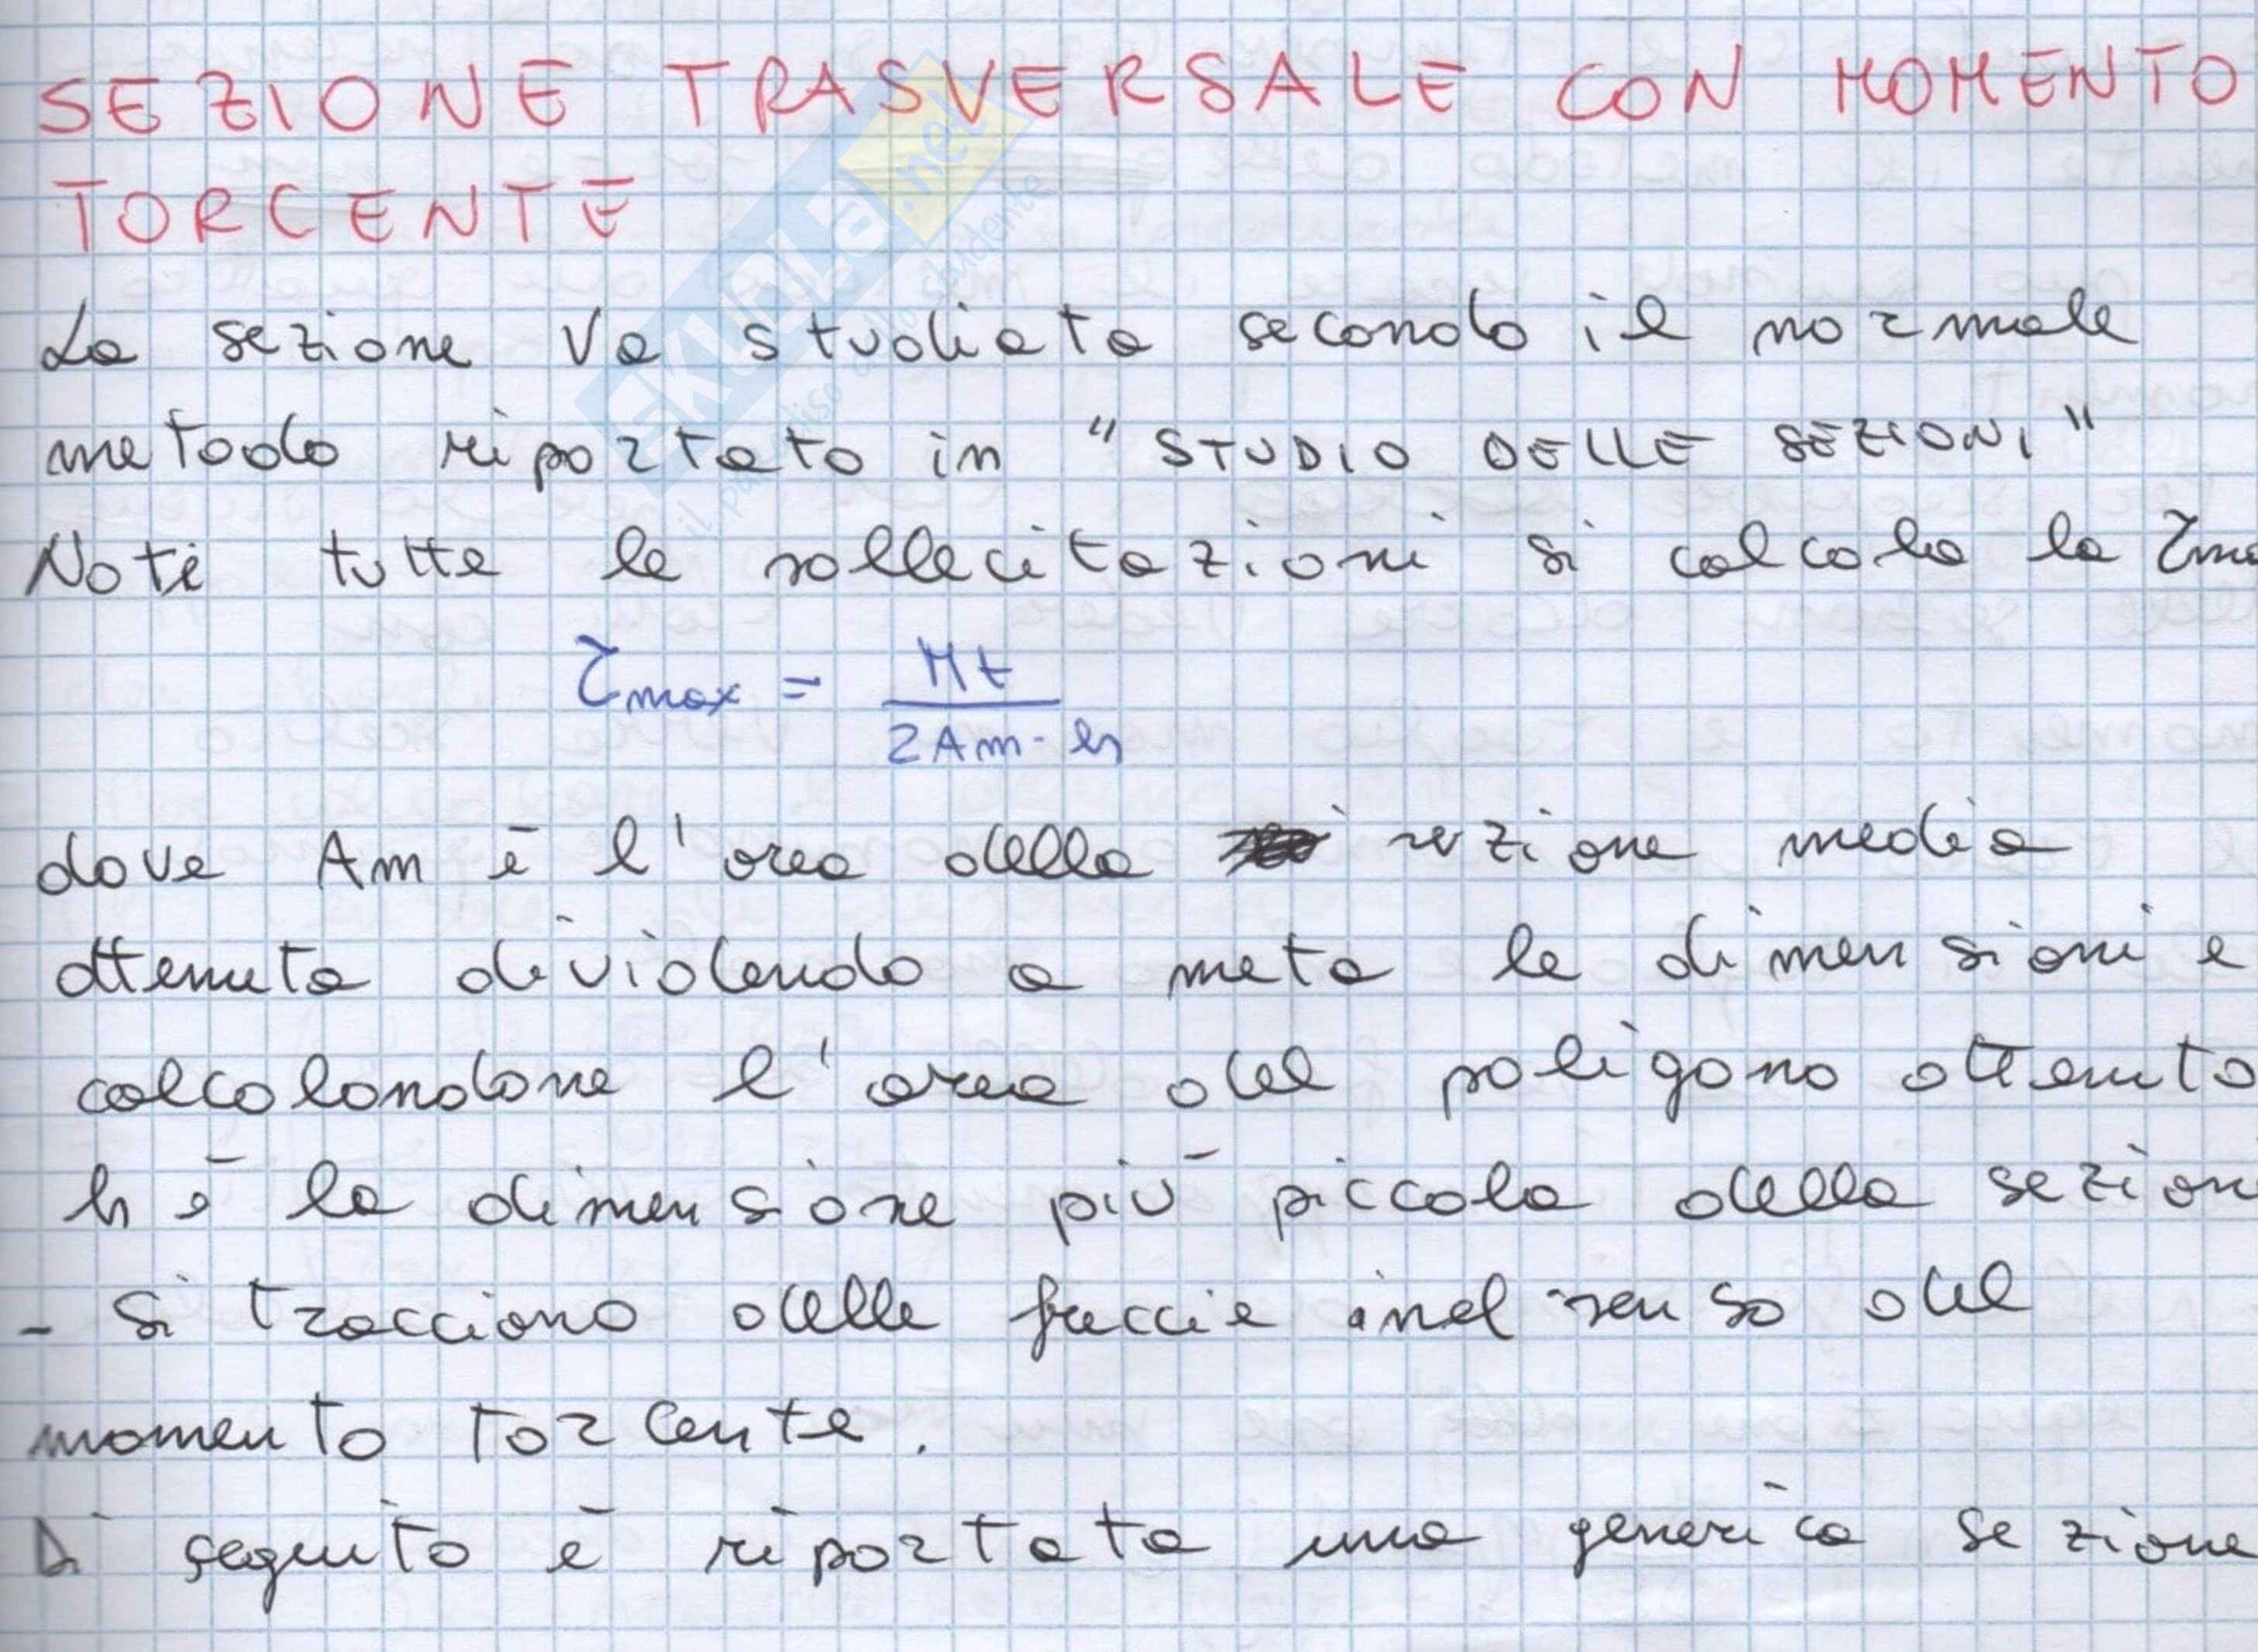 SEZIONE TRASVERSALE CON MOMENTO
TORCENTE
La sezione va studiata secondo il normale
metodo riportato in "STUDIO DELLE SEZIONI"
Noti tutte le sollecitazioni si calcola la τma
τmax = Mt / 2Am · h
dove Am è l'area della sezione media
ottenuta dividendo a meta le dimensioni e
calcolandone l'area del poligono ottenuto
h è la dimensione più piccola della sezion
- Si tracciano delle freccie nel senso del
momento torcente.
Di seguito è riportata una generica sezione
SKUOLA.net
il paradiso dello studente